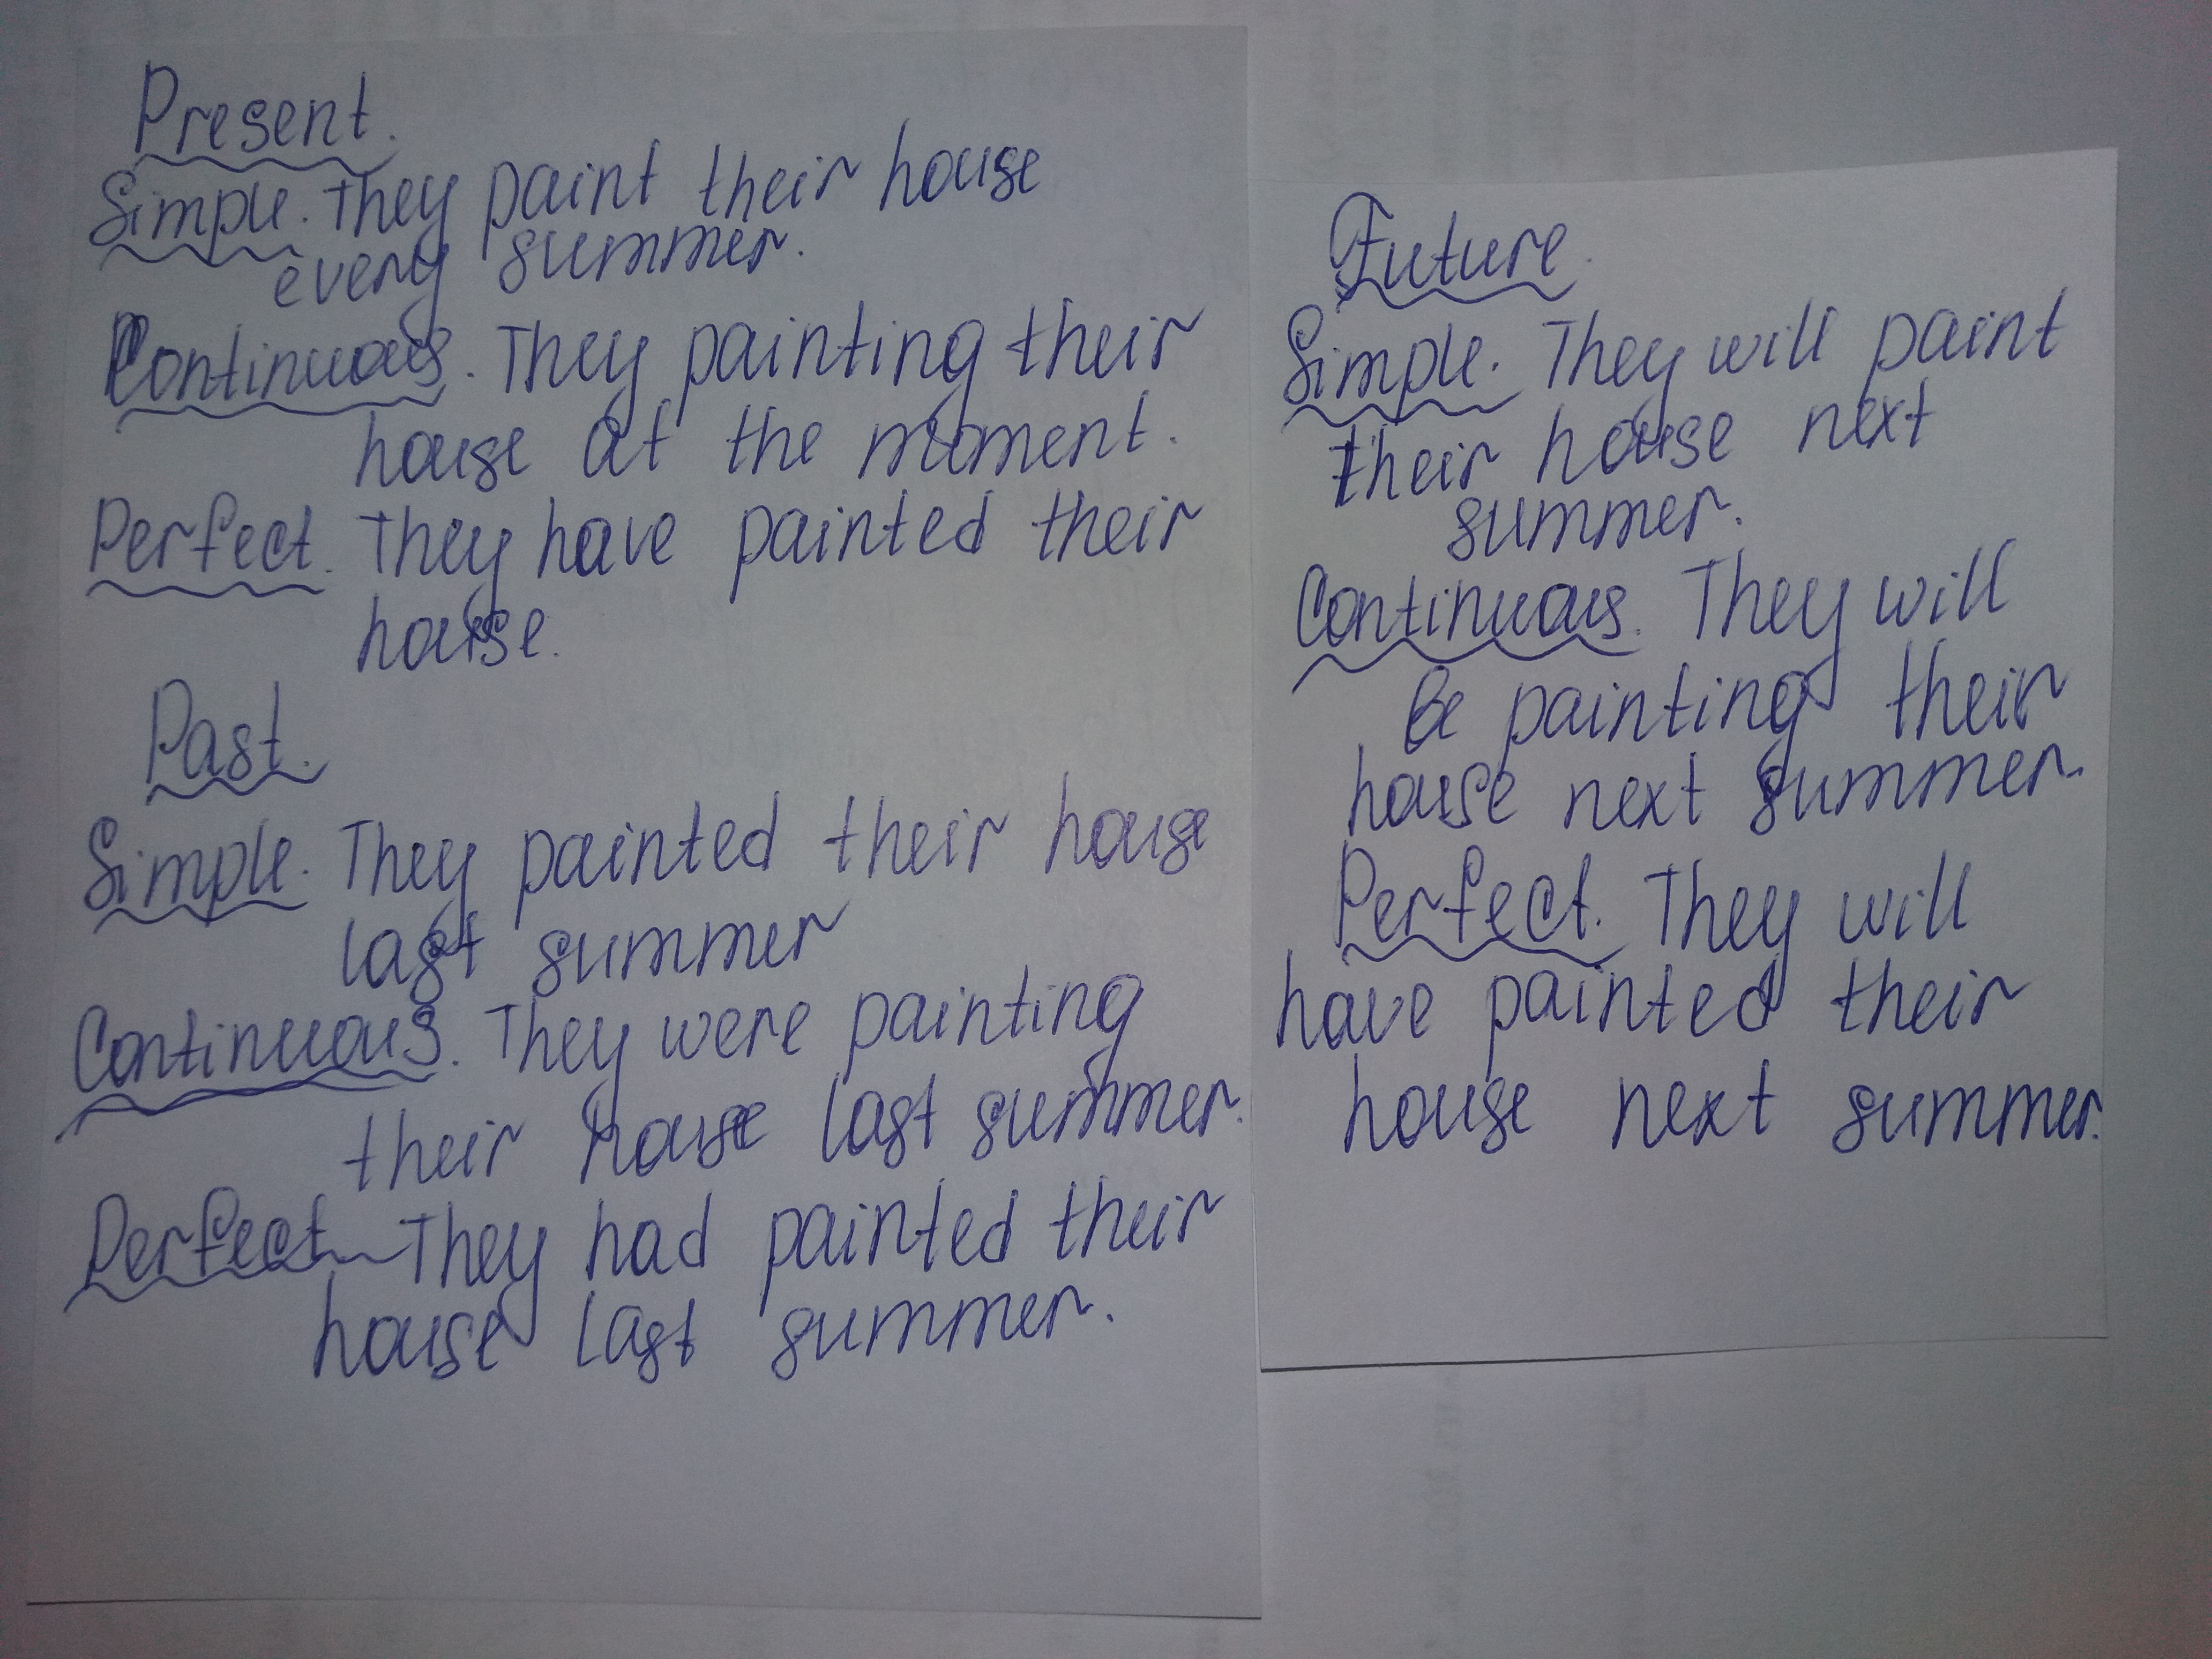 Present.
Simple. They paint their house
every summer.
Continuous. They painting their
house at the moment.
Perfect. They have painted their
house.
Past.
Simple. They painted their house
last summer
Continuous. They were painting
their house last summer.
Perfect They had painted their
house last summer.
Future.
Simple. They will paint
their house next
summer.
Continuous. They will
be painting their
house next summer.
Perfect. They will
have painted their
house next summer.